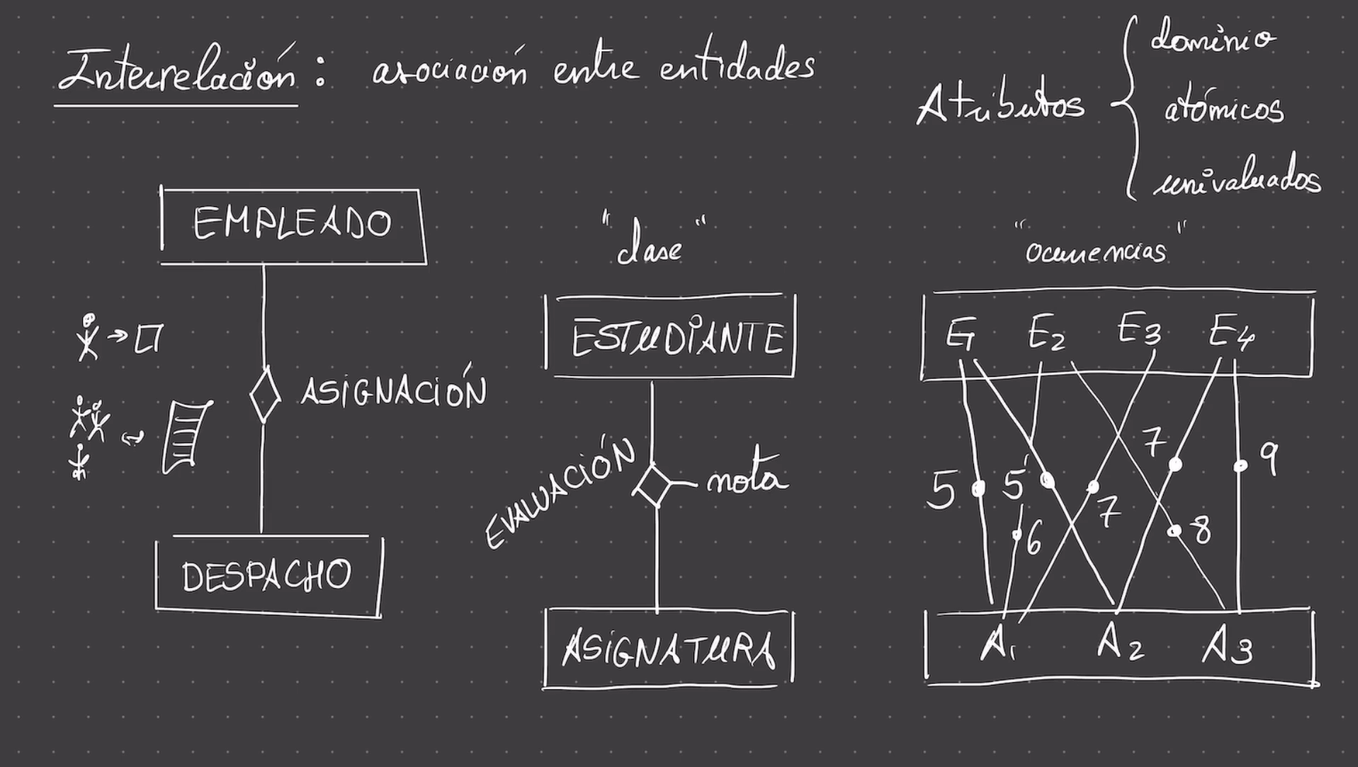 Interrelación: asociación entre entidades
Atributos
dominio
atómicos
univaluados
EMPLEADO
ASIGNACIÓN
DESPACHO
"clase"
ESTUDIANTE
EVALUACIÓN
nota
ASIGNATURA
"ocurrencias"
E1 E2 E3 E4
7 9
5 5 7
6 8
A1 A2 A3